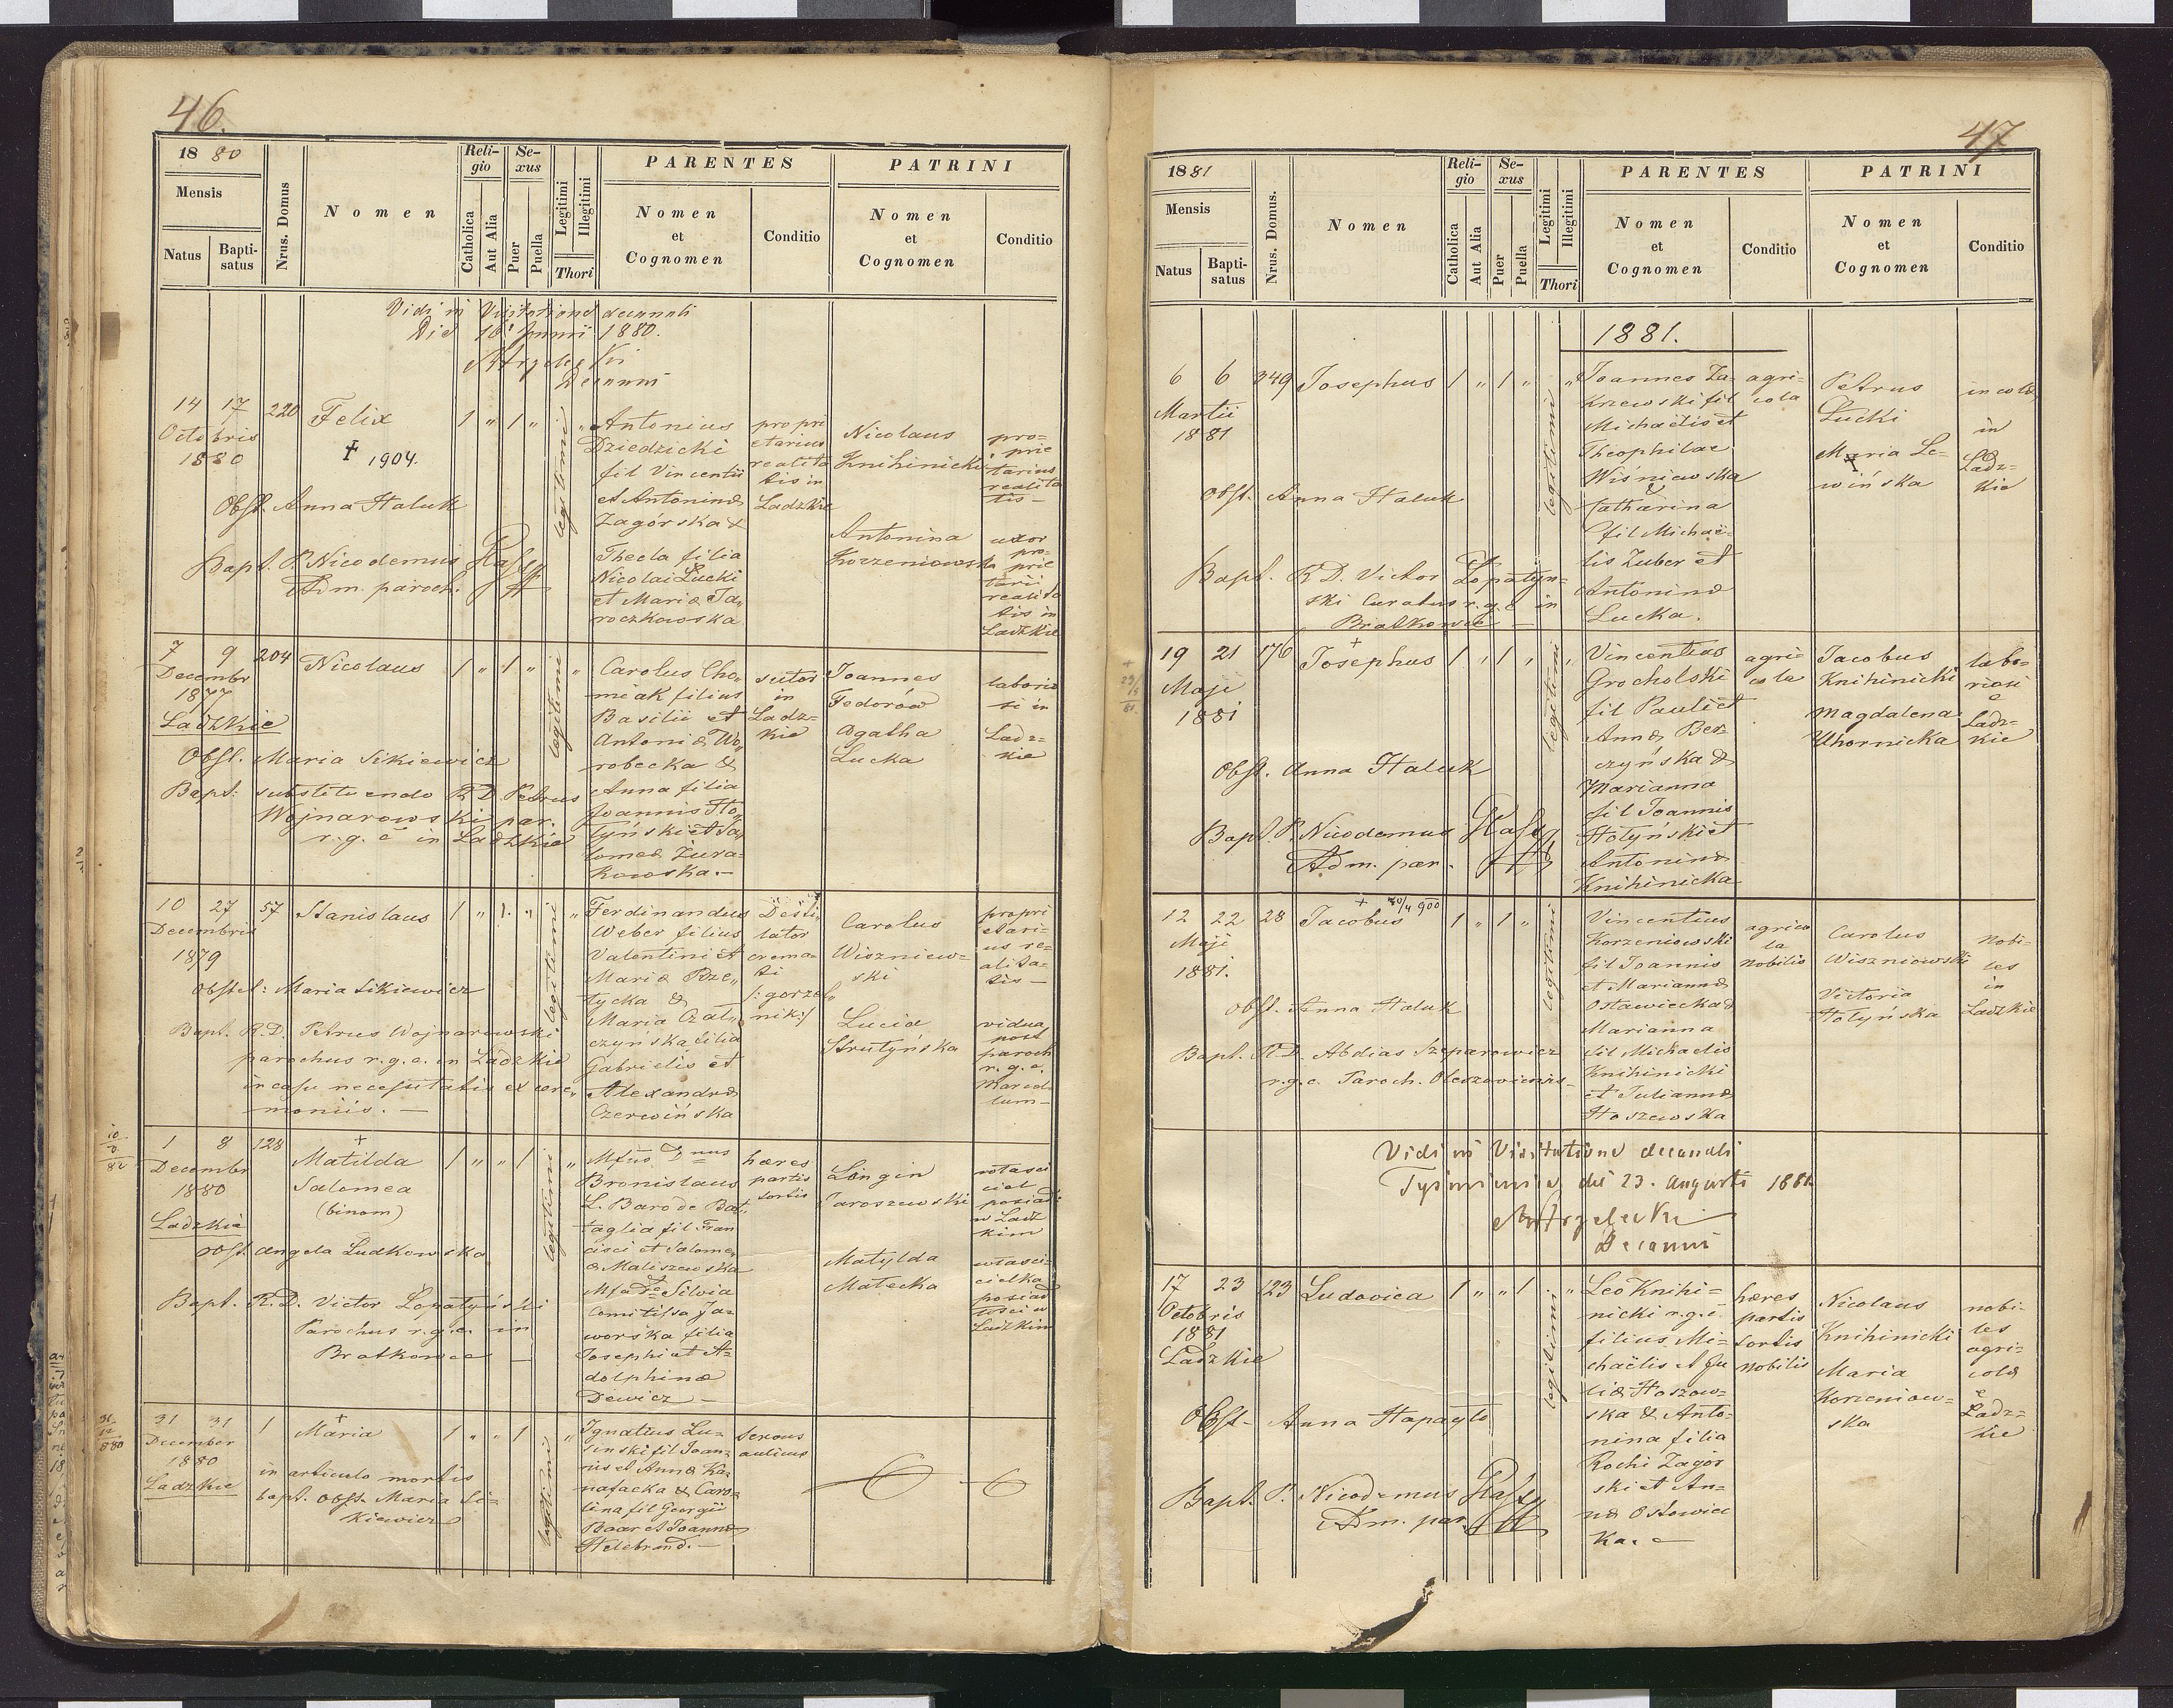 46.
18 80
Mensis
Natus
Bapti-
satus
Nrus. Domus
Nomen
Reli-
gio
Catholica
Aut Alia
Se-
xus
Puer
Puella
Legitimi
Illegitimi
Thori
PARENTES
Nomen
et
Cognomen
Conditio
PATRINI
Nomen
et
Cognomen
Conditio
Vidi in Visitatione decanali
Die 16 Junii 1880.
Decanus
14 17 220 Felix 1 " 1 " "
Octobris
1880
† 1904.
Obst. Anna Haluk
Bapt. P. Nicodemus
Adm. paroch.
legitimi
Antonius
Dziedzicki
fil Vincentii
et Antoninæ
Zagórska &
Thecla filia
Nicolai Łucki
et Mariæ Ja-
roczkowska
propri
etarius
realita
tis in
Ladzkie
Nicolaus
Knihinicki
Antonina
Korzeniowska
pro=
prie
tarius
realita
tis —
uxor
pro-
prie
tarii
realita
tis in
Ladzkie
7 9 204 Nicolaus 1 " 1 " "
Decembr
1877
Ladzkie
Obst. Maria Sikiewicz
Bapt: substituendo R D Petrus
Wojnarowski par.
r. g. c in Ladzkie
legitimi
Carolus Cho-
miak filius
Basilii et
Antoniæ Wo-
robecka &
Anna filia
Joannis Ho-
łyński et Sa-
lomeæ Żura-
kowska.—
sutor
in
Ladz=
kie
Joannes
Fedorów
Agatha
Łucka
laborio
si in
Ladz=
kie
10 27 57 Stanislaus 1 " 1. " "
Decembris
1879
Obstet: Maria Sikiewicz
Bapt. R.D. Petrus Wojnarowski
parochus r. g. c. in Ladzkie
in casu necessitatis ex cere-
moniis. —
legitimi
Ferdinandus
Weber filius
Valentini et
Mariæ Brze-
tycka &
Maria Czat-
czyńska filia
Gabrielis et
Alexandræ
Czerwińska
Desti-
lator
crema-
ti
/: gorzel-
nik :/
Carolus
Wiszniew-
ski
Lucia
Strutyńska
propri
etari-
us re-
alita-
tis —
vidua
post
paroch
r. g. c.
1 8 128 Matilda 1 " " 1 "
Decembr
1880
Ladzkie
Salomea
(binom)
Obst. Angela Ludkowska
Bapt. R.D. Victor Łopatyński
Parochus r. g. c. in
Bratkowce —
legitimi
Bronislaus
L. Baro de Bat-
taglia fil Fran
cisci et Salome-
æ Maliszewska
Silvia
Comitissa Ja-
worska filia
Josephi et A-
dolphinæ
Dewicz —
hæres
partis
sortis
Longin
Jaroszewski
Matylda
Małecka
własci
ciel
posiadł
w Ladz
kim
własci-
cielka
posiad
łości w
Ladzkim
31 31 1 Maria 1 " " 1 "
December
1880
Ladzkie
in articulo mortis
bapt. obst. Maria Si-
kiewicz
legitimi
Ignatius Lu-
sinski fil Joan-
nis et Annæ Ka-
nafacka & Caro-
lina fil Georgii
Baar et Joannæ
Helebrand. —
servus
aulicus
47
18 81
Mensis
Natus
Bapti-
satus
Nrus. Domus.
Nomen
Reli-
gio
Catholica
Aut Alia
Se-
xus
Puer
Puella
Legitimi
Illegitimi
Thori
PARENTES
Nomen
et
Cognomen
Conditio
PATRINI
Nomen
et
Cognomen
Conditio
1881.
6 6 249 Josephus 1 " 1 " "
Martii
1881
Obst. Anna Haluk
Bapt. R D. Victor Łopatyn-
ski Curatus r. g. c in
Bratkowce —
legitimi
Joannes Za-
krzewski fil
Michaelis et
Theophilae
Wiśniewska
&
Catharina
fil Michae-
lis Zuber et
Antoninæ
Łucka.
agri-
cola
Petrus
Łucki
Maria Le-
wińska
incolæ
in
Ladz=
kie
19 21 176 Josephus 1 " 1 " "
Maji
1881
Obst. Anna Haluk
Bapt. P. Nicodemus
Adm. par.
legitimi
Vincentius
Grocholski
fil Pauli et
Annæ Ber-
czyńska &
Marianna
fil Joannis
Hołyński et
Antoninæ
Knihinicka
agri-
cola
Jacobus
Knihinicki
Magdalena
Uhornicka
labo-
riosi
Ladz-
kie
12 22 28 Jacobus 1 " 1 "
Maji
1881.
Obst. Anna Haluk
Bapt. R.D. Abdias Szeparowicz
r. g. c. Paroch.
legitimi
Vincentius
Korzeniowski
fil Joannis
et Mariannæ
Ostawiecka &
Marianna
fil Michaelis
Knihinicki
et Juliannæ
Hoszowska
agrico
la
nobilis
Carolus
Wiszniowski
Victoria
Hołyńska
nobi-
les
in
Ladzkie
Vidi in Visitatione decanali
Tysmienicæ die 23. Augusti 1881
Decanus
17 23 123 Ludovica 1 " " 1 "
Octobris
1881
Ladzkie
Obst- Anna Hapayło
Bapt. P. Nicodemus
Adm. par.
legitimi
Leo Knihi=
nicki r. g. c.
filius Mi-
chaëlis et Ju
liæ Hoszow-
ska & Anto-
nina filia
Rochi Zagór
ski et An-
næ Ostowiec
ka. —
hæres
partis
sortis
nobilis
Nicolaus
Knihinicki
Maria
Korzeniow-
ska
nobi-
les
agri-
colæ
Ladz=
kie